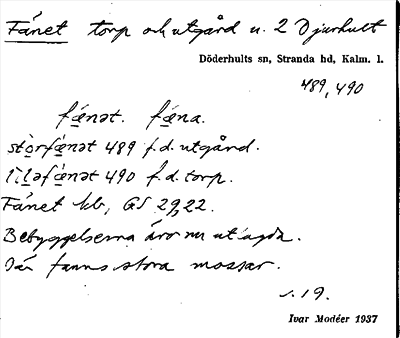 Fånet torp och utgård u. 2 Djurhult
Döderhults sn, Stranda hd, Kalm. l.
489, 490
fǽnət. fǽna.
stòrfǽnət 489 f.d. utgård.
lìləfǽnət 490 f.d. torp.
Fånet kb, GS 29, 22.
Bebyggelserna äro nu utagda.
Där fanns stora mossar.
s. 19.
Ivar Modéer 1937